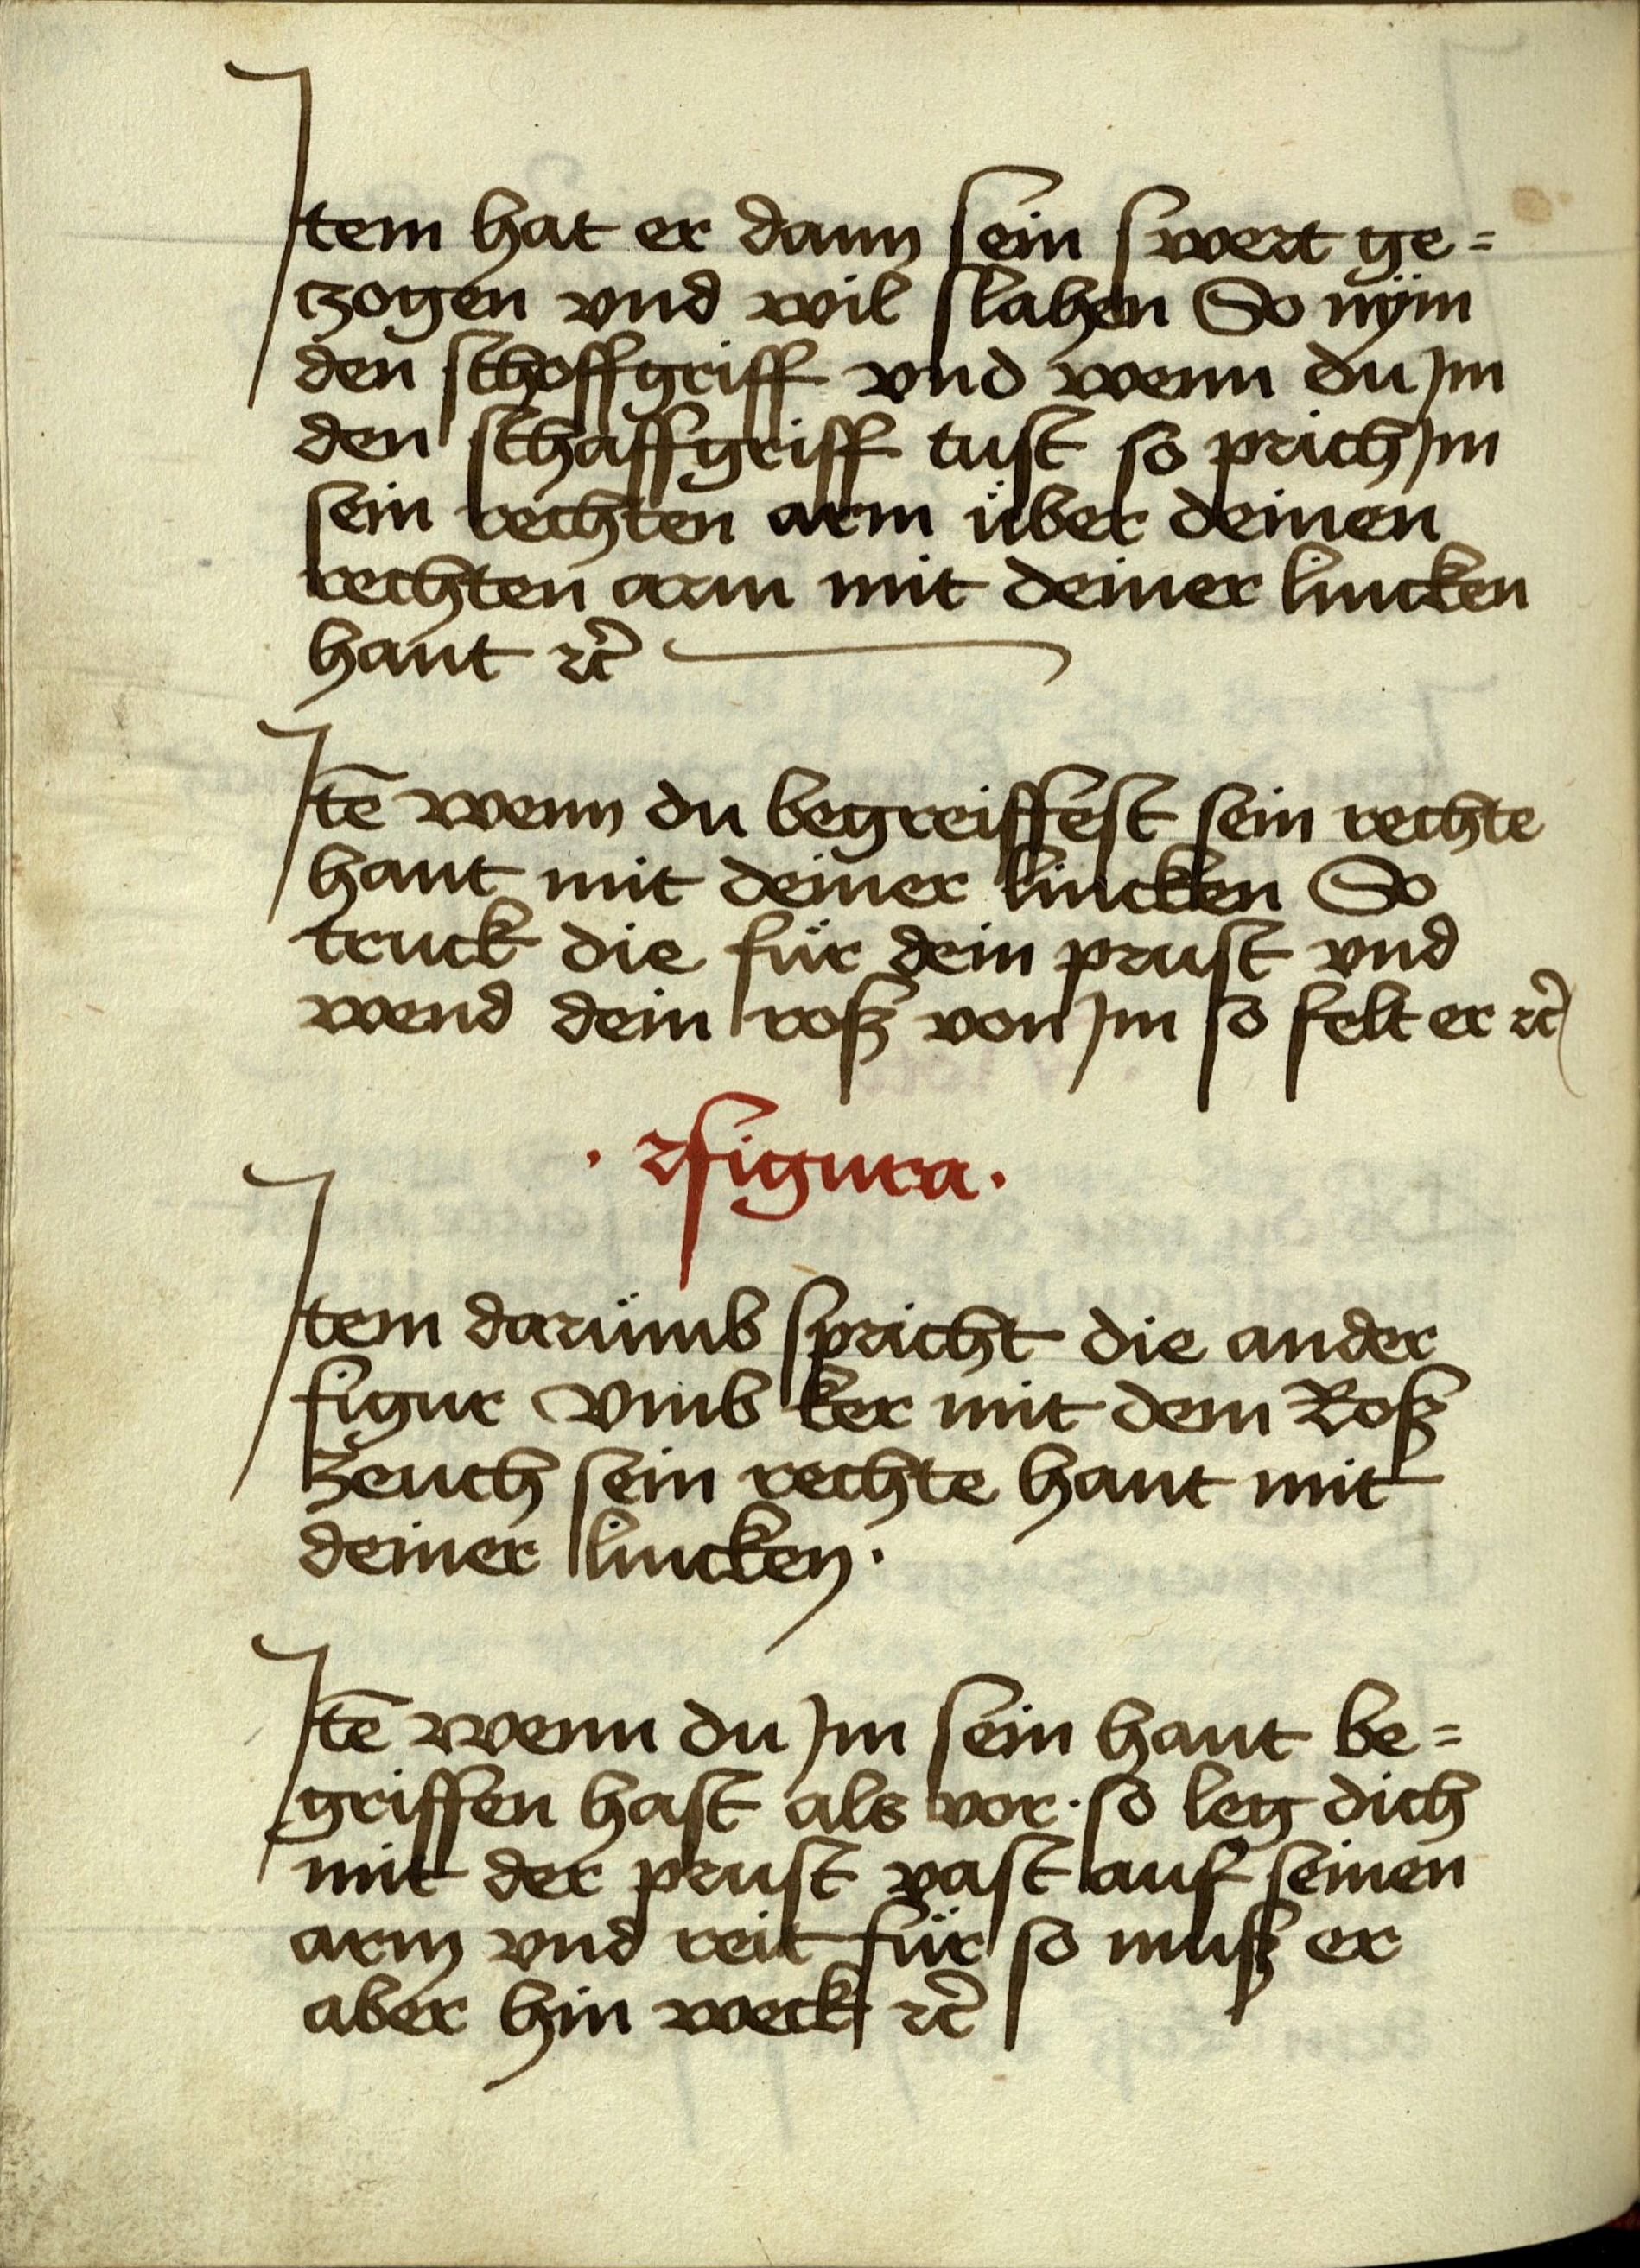 Item hat er dann sein swert ge=
tzogen vnd wil slahen So nÿm
den schoffgriff vnd wenn du Jm
den schaffgriff tust so prich Jm
sein rechten arm über deinen
rechten arm mit deiner lincken
hant ꝛc̃
Itē wenn du begreiffest sein rechte
hant mit deiner lincken So
truck die für dein prust vnd
wend dein roß von Jm so felt er ꝛc̃
· 2 figura ·
Item darümb spricht die ander
figur Vmb ker mit dem Roß
Zeuch sein rechte hant mit
deiner lincken ·
Itē wenn du Jm sein hant be=
griffen hast als vor · so leg dich
mit der prust vast auf seinen
arm vnd reit für so muß er
aber hin weck ꝛc̃